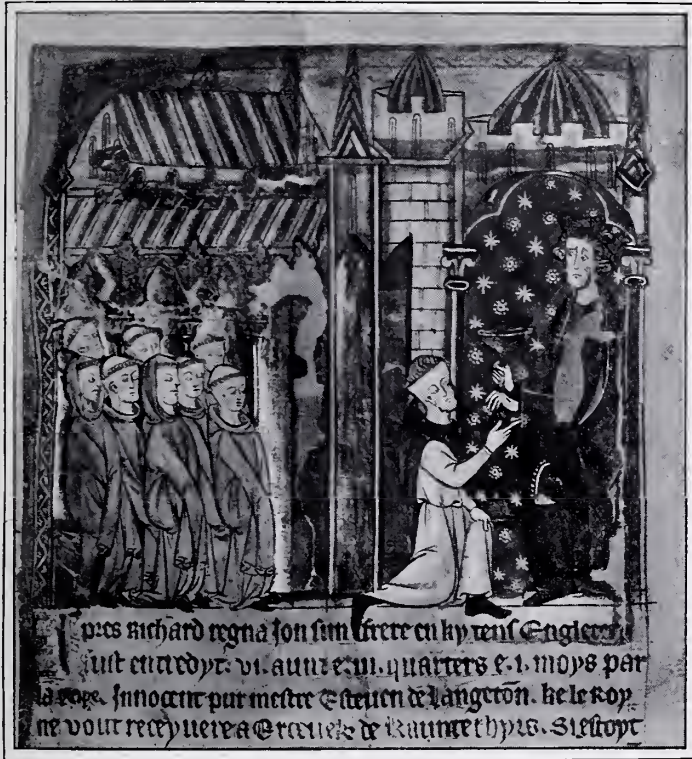 pres Richard regna Jon sun frere en ky tens Engleter
fust entredyt. vi. aunz e. iii. quarters e. i. moys par
la Pope. Innocent pur mestre Esteuen de Langeton. ke le Roy
ne vout receyuere a Erceuek de Kaunterbyrs. Si estoyt